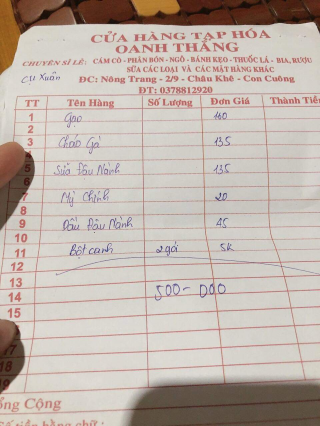 CỬA HÀNG TẠP HÓA
OANH THẮNG
CHUYÊN SỈ LẺ: CÁM CÒ - PHÂN BÓN - NGÔ - BÁNH KẸO - THUỐC LÁ - BIA, RƯỢU
SỮA CÁC LOẠI VÀ CÁC MẶT HÀNG KHÁC
Cu Xuân
ĐC: Nông Trang - 2/9 - Châu Khê - Con Cuông
ĐT: 0378812920
TT Tên Hàng Số Lượng Đơn Giá Thành Tiền
1 Gạo 140
2
3 Cháo Gà 135
5 Sữa Đậu Nành 135
7 Mỳ Chính 20
8
9 Dầu Đậu Nành 45
10
11 Bột canh 2 gó 5K
12
13 500-000
14
15
17
18
19
ổng Cộng
Số tiền bằng chữ: